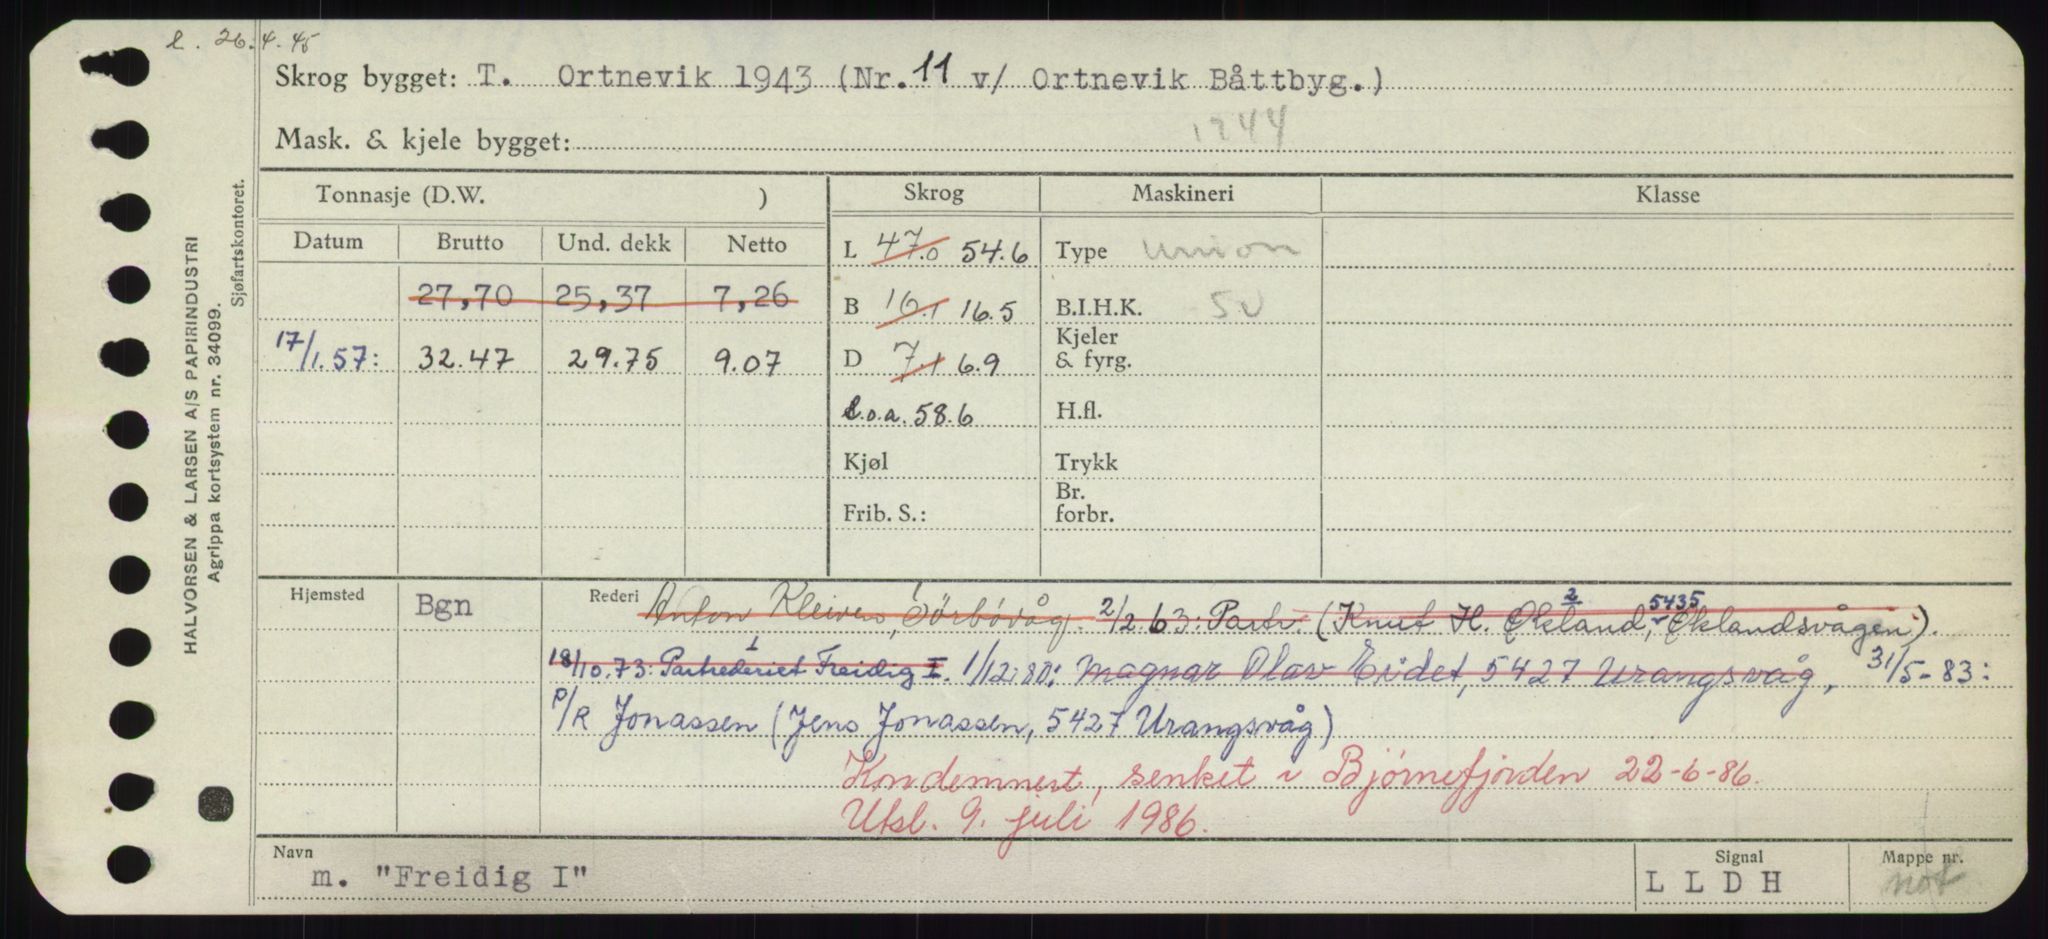 l. 26.4.45
Skrog bygget: T. Ortnevik 1943 (Nr. 11 v/ Ortnevik Båttbyg.)
Mask. & kjele bygget: 1944
HALVORSEN & LARSEN A/S PAPIRINDUSTRI
Agrippa kortsystem nr. 34099.
Sjøfartskontoret.
Tonnasje (D.W. )
Skrog Maskineri Klasse
Datum Brutto Und. dekk Netto
27,70 25,37 7,26
17/1.57: 32.47 29.75 9.07
L 47.0 54.6
B 16.1 16.5
D 7.1 6.9
l.o.a. 58.6
Kjøl
Frib. S.:
Type Union
B.I.H.K. 50
Kjeler
& fyrg.
H.fl.
Trykk
Br.
forbr.
Hjemsted Bgn
Rederi Anton Kleiven, Sörbövåg. 2/2.63: Partr. (Knut H. Økland, 5435 Øklandsvågen).
18/10.73: Partrederiet Freidig I. 1/12.80: Magnar Olav Eidet, 5427 Urangsvåg, 31/5-83:
P/R Jonassen (Jens Jonassen, 5427 Urangsvåg)
Kondemnert, senket i Bjørnefjorden 22-6-86.
Utsl. 9. juli 1986.
Navn
m. "Freidig I"
Signal
L L D H
Mappe nr.
not